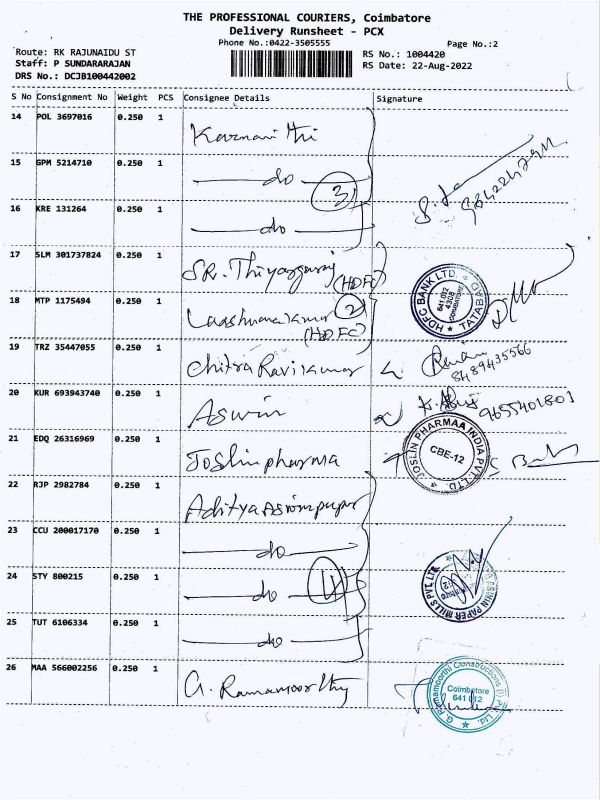 THE PROFESSIONAL COURIERS, Coimbatore
Delivery Runsheet - PCX
Phone No.:0422-3505555
Page No.:2
Route: RK RAJUNAIDU ST
Staff: P SUNDARARAJAN
DRS No.: DCJB100442002
RS No.: 1004420
RS Date: 22-Aug-2022
S No Consignment No Weight PCS Consignee Details Signature
14 POL 3697016 0.250 1
15 GPM 5214710 0.250 1 do
3
16 KRE 131264 0.250 1 do
17 SLM 301737824 0.250 1 SR. Thiyagaraj (HDFC)
HDFC BANK LTD. TATABAD 641 012 4308 COIMBATORE
18 MTP 1175494 0.250 1 2
(HDFC)
19 TRZ 35447055 0.250 1 Chitra Ravikumar
8489435566
20 KUR 693943740 0.250 1 Aswin
9655401801
21 EDQ 26316969 0.250 1 Joslinpharma
JOSLIN PHARMAA INDIA PVT LTD. CBE-12
22 RJP 2982784 0.250 1 Aditya
23 CCU 200017170 0.250 1 do
24 STY 800215 0.250 1 do
ASWIN PAPER MILLS PVT LTD
25 TUT 6106334 0.250 1 do
26 MAA 566002256 0.250 1 G. Ramamoorthy
G. Ramamoorthi Constructions (I) Pvt. Ltd. Coimbatore 641 012